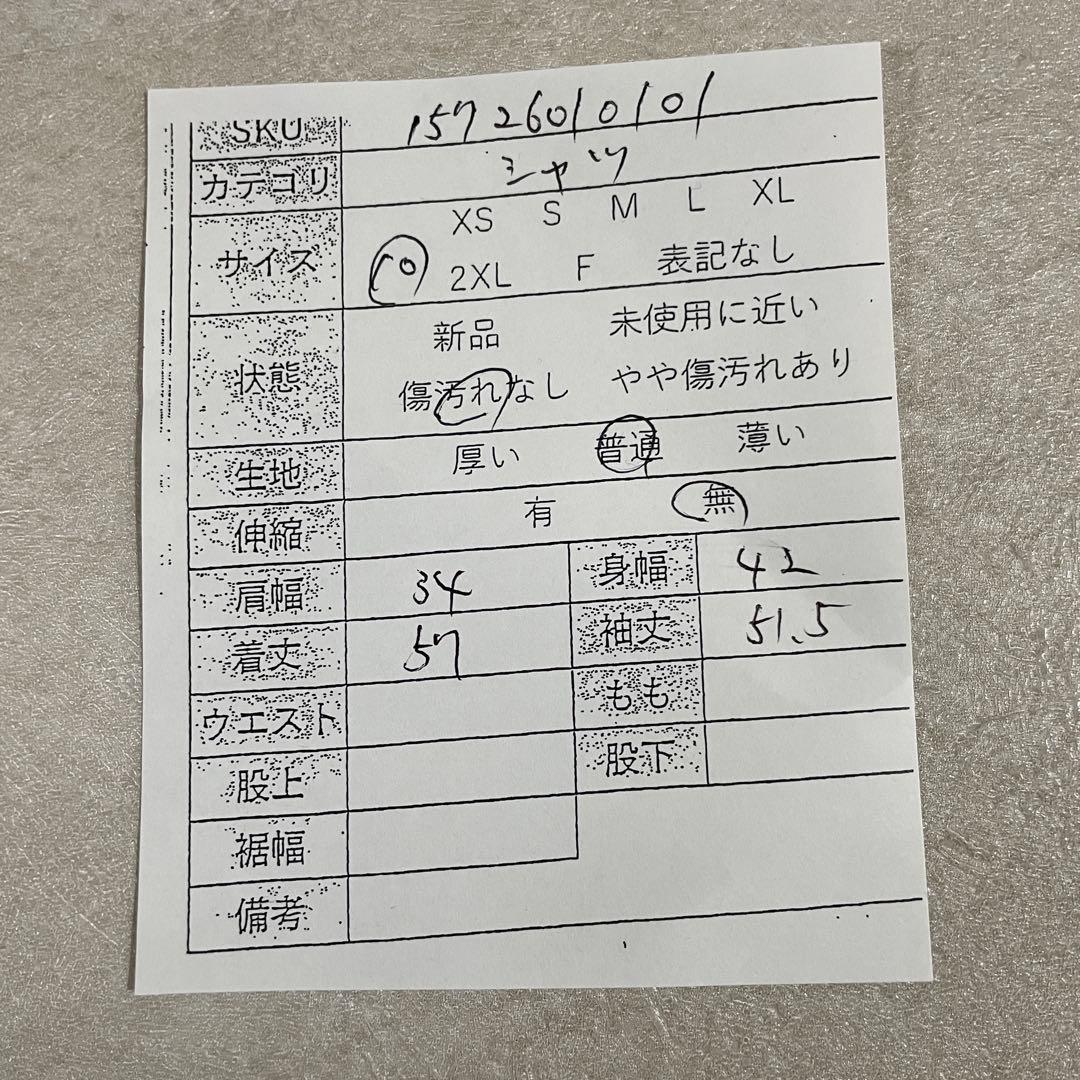 SKU 15726010101
カテゴリ シャツ
サイズ XS S M L XL
2XL F 表記なし
状態 新品 未使用に近い
傷汚れなし やや傷汚れあり
生地 厚い 普通 薄い
伸縮 有 無
肩幅 34 身幅 42
着丈 57 袖丈 51.5
ウエスト もも
股上 股下
裾幅
備考